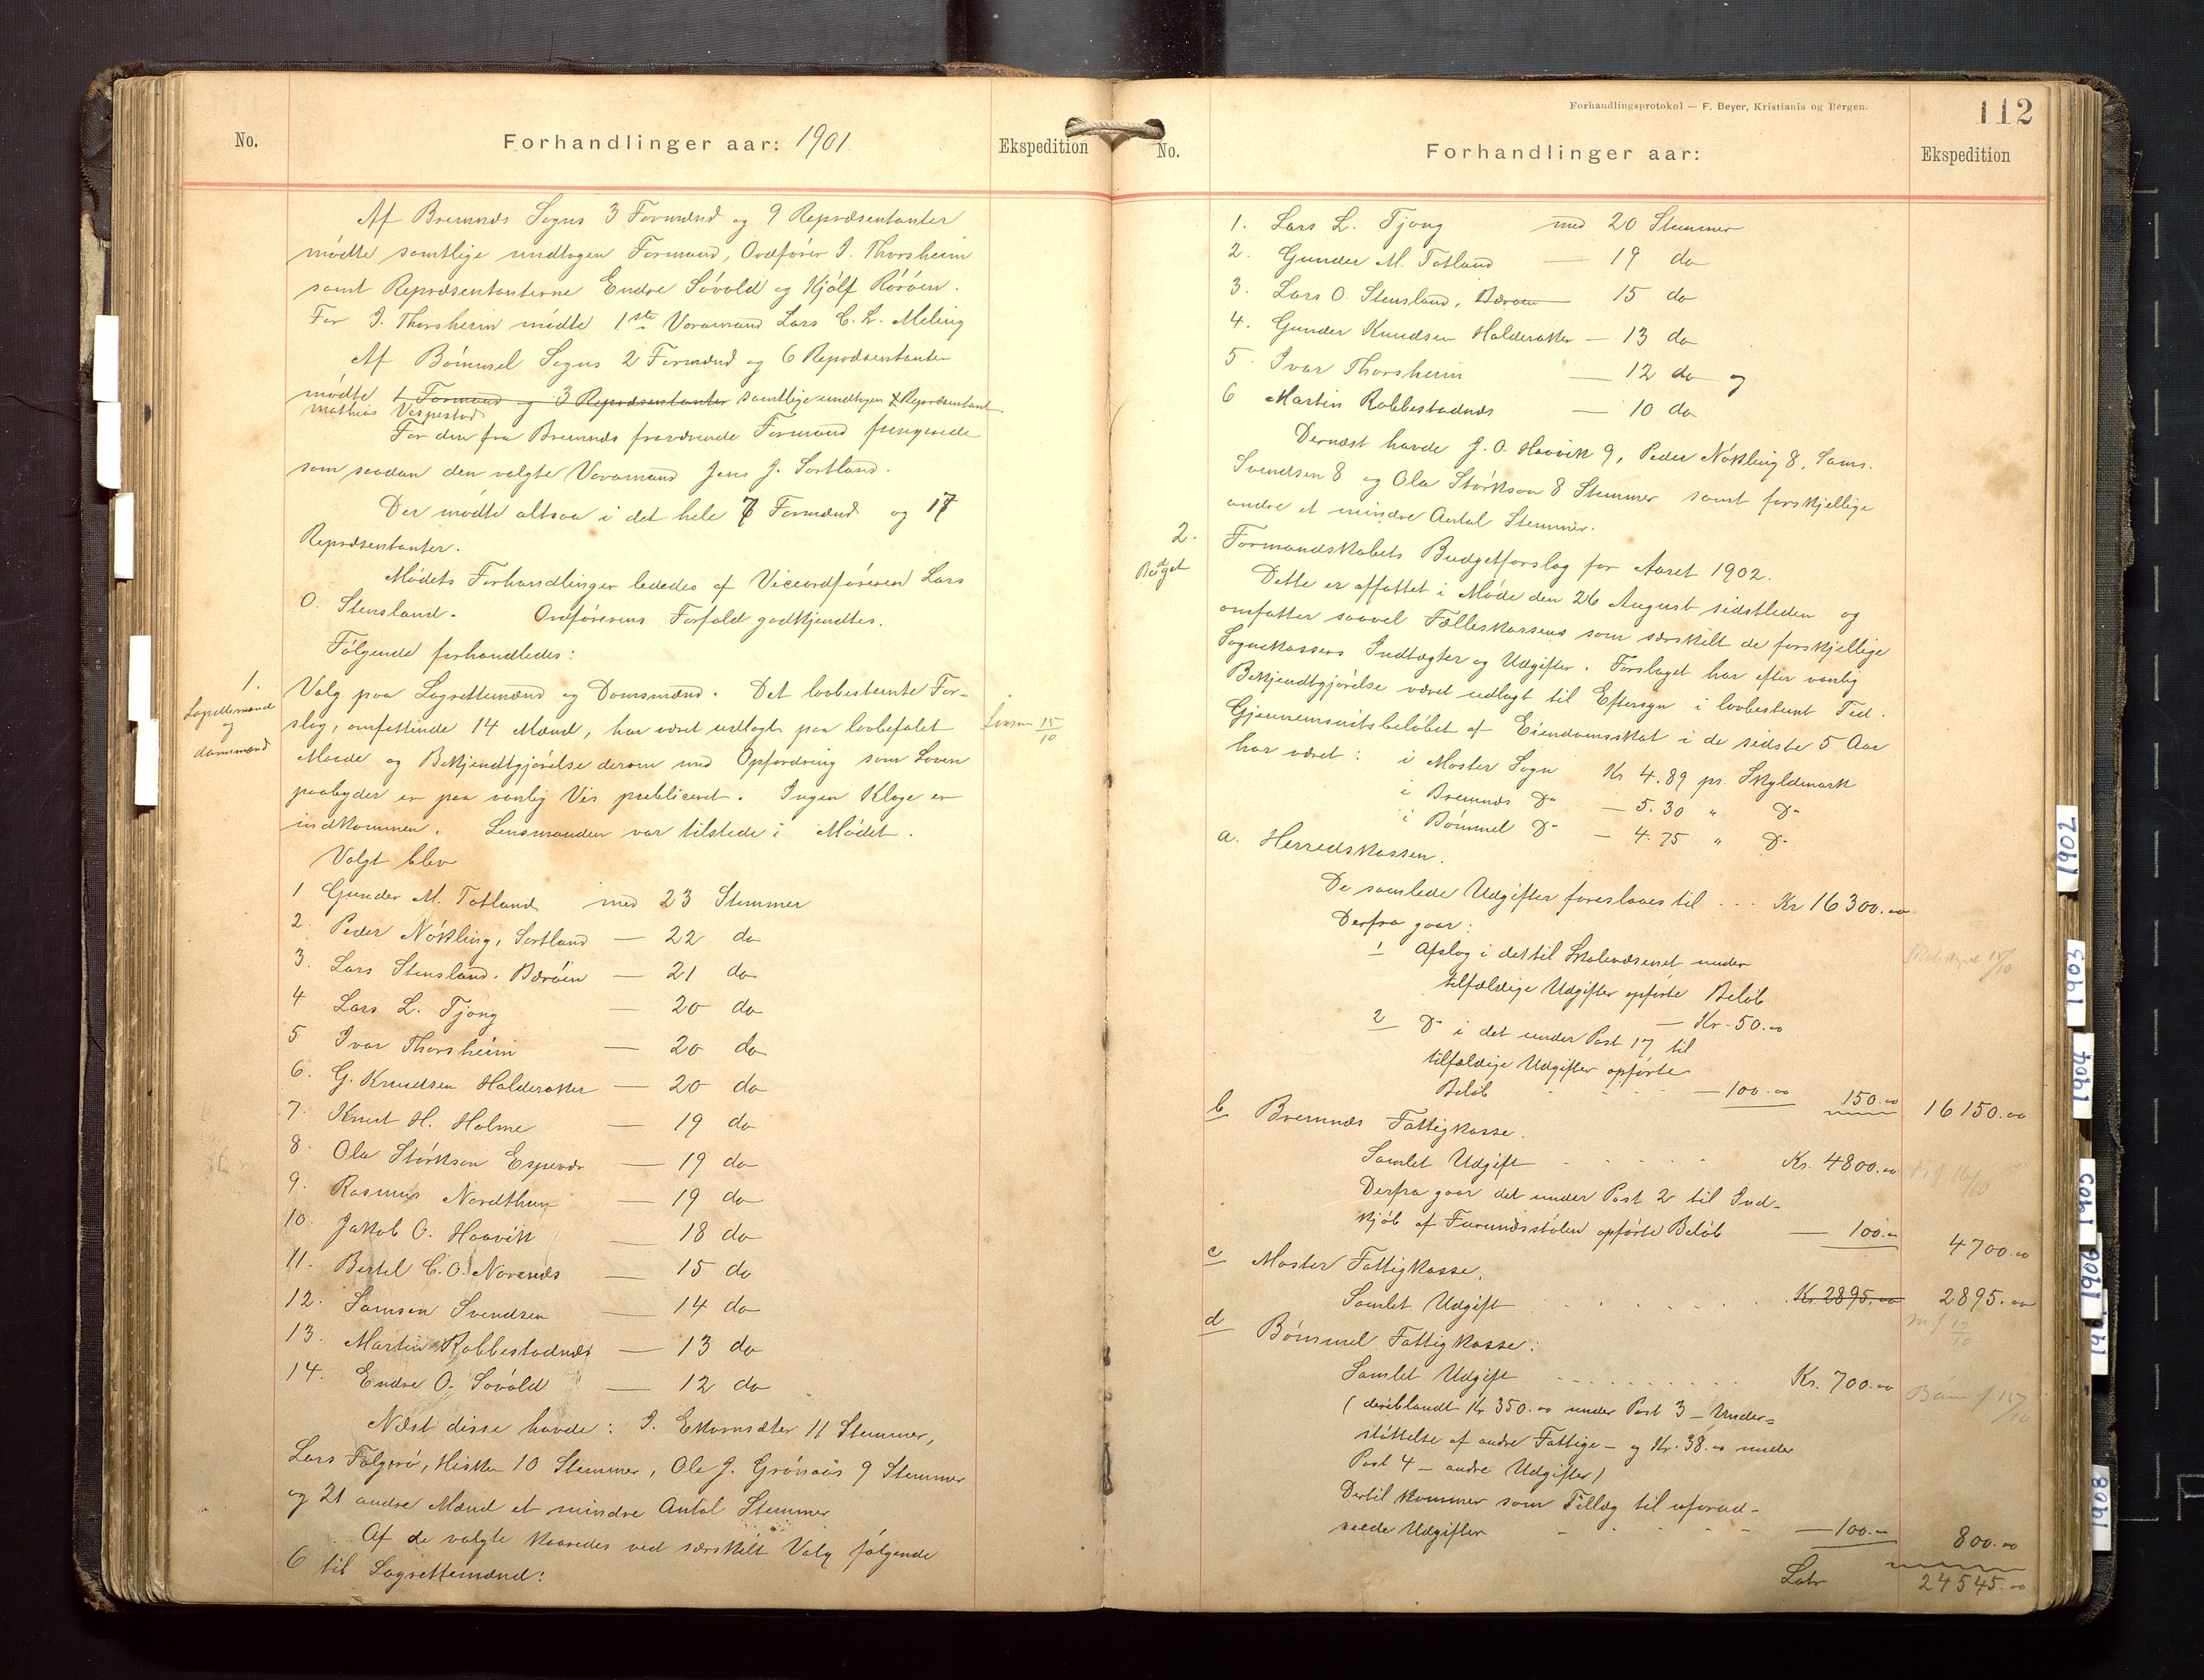 No.
Forhandlinger aar: 1901.
Ekspedition
Af Bremnes Sogns 3 Formænd og 9 Repræsentanter
mødte samtlige undtagen Formand, Ordfører I. Thorsheim
samt Repræsentanterne Endre Søvold og Kjølf Rørøen.
For I. Thorsheim mødte 1ste Varamand Lars C. L. Meling
Af Bømmel Sogns 2 Formænd og 6 Repræsentanter
mødte 1 Formand og 3 Repræsentanter samtlige undtagen Repræsentant
Mathias Vespestad
For den fra Bremnes fraværende Formand fungerede
som saadan den valgte Varamand Jens J. Sortland.
Der mødte altsaa i det hele 7 Formænd og 17
Repræsentanter.
Mødets Forhandlinger lededes af Viceordføreren Lars
O. Stensland. Ordførerens Forfald godkjendtes.
Følgende forhandledes:
1.
Lagrettemænd
og
domsmænd
Valg paa Lagrettemænd og Domsmænd. Det lovbestemte For-
slag, omfattende 14 Mænd, har været udlagt paa lovbefalet
Lensm 15/10
Maade og Bekjendtgjørelse derom med Opfordring som Loven
paabyder er paa vanlig Vis publiceret. Ingen Klage er
indkommen. Lensmanden var tilstede i Mødet.
Valgt blev
1 Gunder M. Totland med 23 Stemmer
2. Peder Nøkling, Sortland — 22 do
3. Lars Stensland, Børøen — 21 do
4 Lars L. Tjong — 20 do
5 Ivar Thorsheim — 20 do
6. G. Knudsen Halderaker — 20 do
7. Knut H. Holme — 19 do
8. Ola Størkson Espevær — 19 do
9. Rasmus Nordthun — 19 do
10. Jakob O. Haavik — 18 do
11. Bertel C. O. Norenes — 15 do
12. Samson Svendsen — 14 do
13. Martin Robbestadnes — 13 do
14. Endre O. Søvold — 12 do
Næst disse havde: I. Ekornsæter 11 Stemmer,
Lars Folgerø, Hisken 10 Stemmer, Ole J. Grønaas 9 Stemmer
og 21 andre Mænd et mindre Antal Stemmer
Af de valgte kaaredes ved særskilt Valg følgende
6 til Lagrettemænd:
Forhandlingsprotokol — F. Beyer, Kristiania og Bergen.
112
No.
Forhandlinger aar:
Ekspedition
1. Lars L. Tjong med 20 Stemmer
2. Gunder M. Totland — 19 do
3. Lars O. Stensland, Børøen — 15 do
4. Gunder Knudsen Halderaker — 13 do
5 Ivar Thorsheim — 12 do og
6 Martin Robbestadnes — 10 do
Dernæst havde J. O. Haavik 9, Peder Nøkling 8, Sams.
Svendsen 8 og Ola Størkson 8 Stemmer samt forskjellige
andre et mindre Antal Stemmer.
2.
Budget
Formandskabets Budgetforslag for Aaret 1902.
Dette er affattet i Møde den 26 August sidstleden og
omfatter saavel Fælleskassens som særskilt de forskjellige
Sognekassers Indtægter og Udgifter. Forslaget har efter vanlig
Bekjendtgjørelse været udlagt til Eftersyn i lovbestemt Tid.
Gjennemsnitsbeløbet af Eiendomsskat i de sidste 5 Aar
har været: i Moster Sogn Kr 4.89 pr. Skyldmark
i Bremnes Do — 5.30 " Do
i Bømmel Do — 4.75 " Do
a. Herredskassen.
De samlede Udgifter foreslaaes til . . . Kr 16300.00
Derfra gaar:
1 Afslag i det til Skolevæsenet under
tilfældige Udgifter opførte Beløb
— Kr. 50.00
2 Do i det under Post 17 til
tilfældige Udgifter opførte
Beløb — 100.00 150.00 16150.00
b Bremnes Fattigkasse.
Samlet Udgift Kr. 4800.00
Derfra gaar det under Post 2 til Ind-
kjøb af Furunæsstølen opførte Beløb — 100.00
4700.00
c Moster Fattigkasse.
Samlet Udgift Kr. 2895.00 2895.00
d Bømmel Fattigkasse:
Samlet Udgift Kr. 700.00
(deriblandt Kr 350.00 under Post 3 — Under-
støttelse af andre Fattige — og Kr. 38.00 under
Post 4 — andre Udgifter)
Dertil kommer som Tillæg til uforud-
seede Udgifter — 100.00
800.00
Latr 24545.00
1902
1903
1904
1905
1906
1908